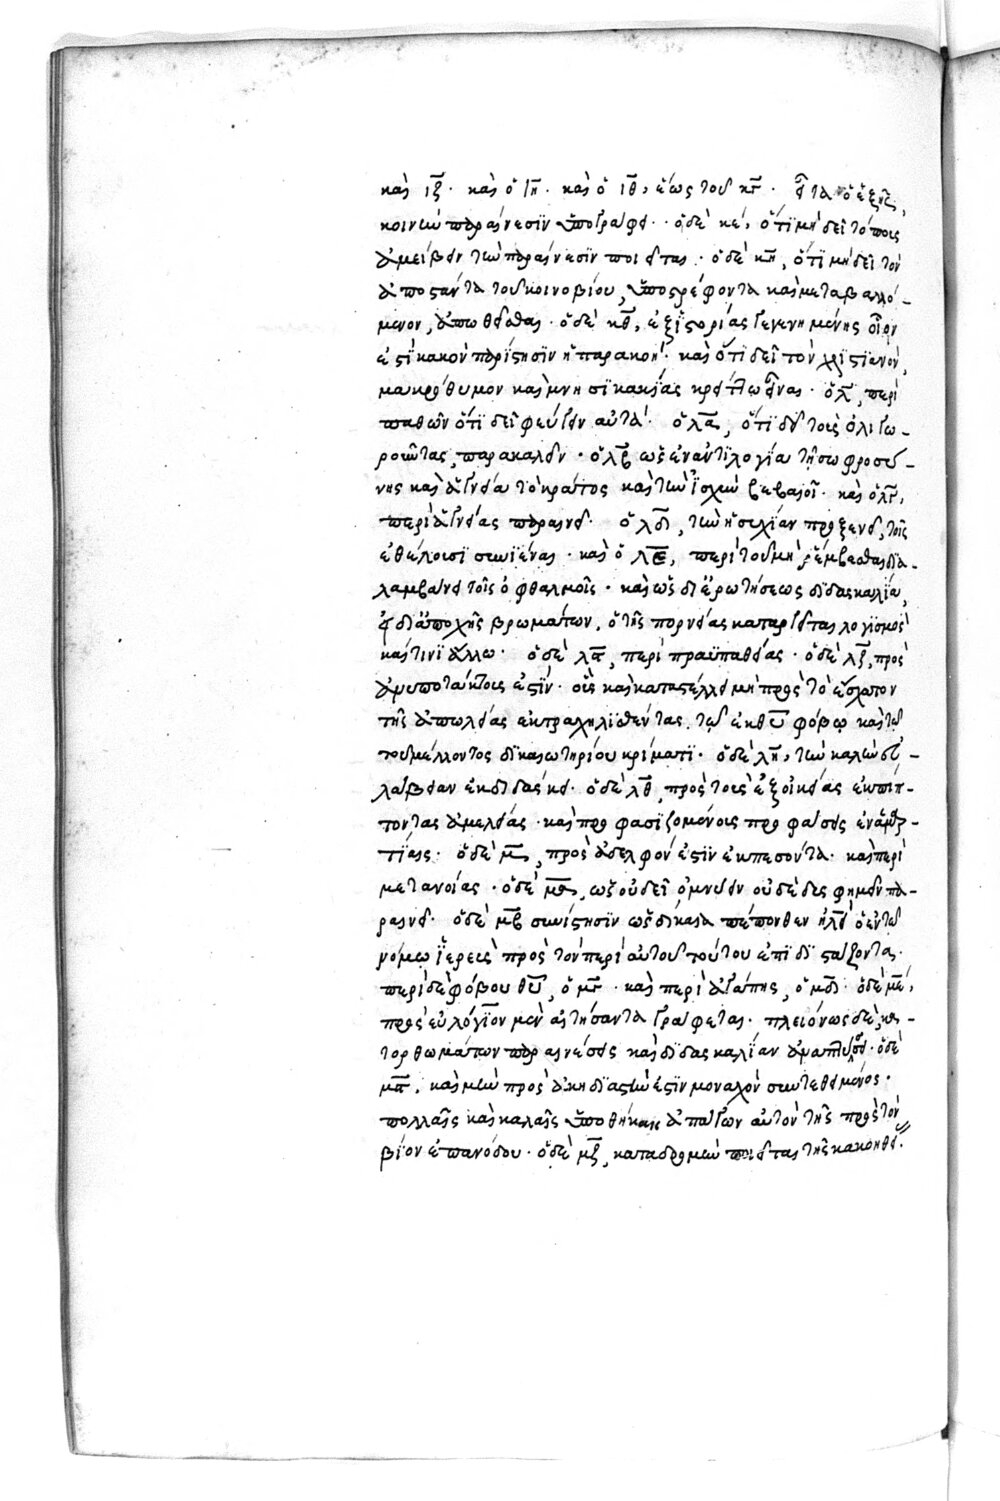 καὶ ιζ̅· καὶ ὁ ιη̅· καὶ ὁ ιθ̅, ἕως τοῦ κγ̅· εἶτα ὁ ἑξῆς,
κοινὴν παραίνεσϊν ὑπογράφει· ὁ δὲ κε̅, ὅτϊ μὴ δεῖ τόποις
ἀμείβειν τὴν παραίνεσϊν ποιεῖται· ὁ δὲ κη̅, ὅτϊ μὴ δεῖ τὸν
ἀποστάντα τοῦ κοινοβίου, ὑποστρέφοντα καὶ μεταβαλλό-
μενον, ἀπωθεῖσθαι· ὁ δὲ κθ̅, ἐξϊστορίας γεγενημένης οἷον
ἐστὶ κακὸν παρίστησϊν ἡ παρακοή· καὶ ὅτϊ δεῖ τὸν χρϊστϊανὸν,
μακρόθυμον καὶ μνησϊκακίας κρείττω εἶναι· ὁ λ̅, περὶ
παθῶν ὅτϊ δεῖ φεύγειν αὐτά· ὁ λα̅, ὅτϊ δεῖ τοὺς ὀλιγω-
ροῦντας, παρακαλεῖν· ὁ λβ̅ ὡς ἐναντϊλογία τῆ σωφροσύ-
νης καὶ ἁγνεία τὸ κράτος καὶ τὴν ἰσχὺν βεβαιοῖ· καὶ ὁ λγ̅,
περὶ ἁγνείας παραινεῖ· ὁ λδ̅, τὴν ἡσυχίαν προξενεῖ, τοῖς
ἐθέλουσϊ συνϊέναι· καὶ ὁ λε̅, περὶ τοῦ μὴ ῥέμβεσθαι δϊα-
λαμβάνει τοῖς ὀφθαλμοῖς· καὶ ὡς δϊ ἐρωτήσεως δϊδασκαλία,
εἰ δϊ ἀποχῆς βρωμάτων, ὁ τῆς πορνείας καταργεῖται λογϊσμὸς
καί τινϊ ἄλλω· ὁ δὲ λϛ̅, περὶ πραϋπαθείας· ὁ δὲ λζ̅, πρὸς
ἀνυποτάκτους ἐστϊν· οὓς καὶ καταστέλλει μὴ πρὸς τὸ ἔσχατον
τῆς ἀπωλείας ἐκτραχηλϊσθέντας, τῷ ἐκ θυ̅ φόβῳ καὶ τῷ
τοῦ μέλλοντος δϊκαιωτηρίου κρίματϊ· ὁ δὲ λη̅, τὴν καλὴν εὐ-
λάβειαν ἐκδϊδάσκει· ὁ δὲ λθ̅, πρὸς τοὺς ἐξ οἰκείας ἐκπίπ-
τοντας ἀμελείας· καὶ προφασϊζομένους προφάσεις ἐν ἁμαρ-
τίαις· ὁ δὲ μ̅, πρὸς ἀδελφόν ἐστϊν ἐκπεσόντα· καὶ περὶ
μετανοίας· ὁ δὲ μα̅, ὡς οὐ δεῖ ὀμνύειν οὐδὲ δεσφημεῖν πα-
ραινεῖ· ὁ δὲ μβ̅ συνίστησϊν ὡς δίκαια πέπονθεν ἠλεὶ ὁ ἐν τῷ
νόμῳ ἱερεὺς πρὸς τὸν περὶ αὐτοῦ τούτου ἐπϊδϊστάζοντα·
περὶ δὲ φόβου θυ̅, ὁ μγ̅· καὶ περὶ ἀγάπης, ὁ μδ̅· ὁ δὲ με̅,
πρὸς εὐλόγϊον μὲν αἰτήσαντα γράφεται· πλειόνως δὲ, κα-
τορθωμάτων παραινέσεις καὶ δϊδασκαλίαν ἀναπλεῖ· ὁ δὲ
μϛ̅, καὶ μὴν πρὸς ἀκηδϊαστὴν ἐστϊν μοναχὸν συντεθειμένος·
πολλαῖς καὶ καλαῖς ὑποθήκαις ἀπάγων αὐτὸν τῆς πρὸς τὸν
βίον ἐπανόδου· ὁ δὲ μζ̅, καταδρομὴν ποιεῖται τῆς κακοηθεί